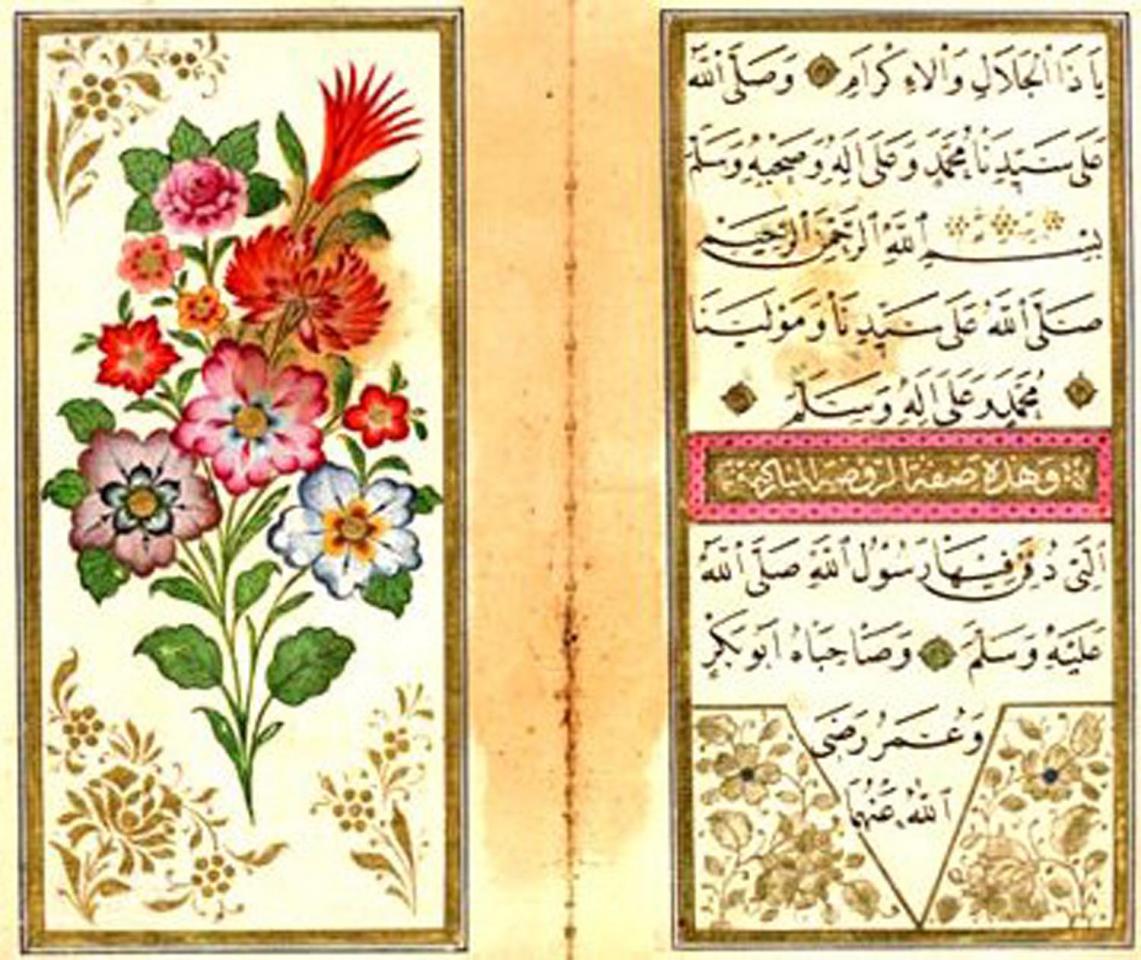 يَا ذَا الْجَلَالِ وَالْاِكْرَامِ وَصَلَّى اللّٰهُ
عَلٰى سَيِّدِنَا مُحَمَّدٍ وَعَلٰى اٰلِهِ وَصَحْبِهِ وَسَلَّمَ
بِسْمِ اللّٰهِ الرَّحْمٰنِ الرَّحِيمِ
صَلَّى اللّٰهُ عَلٰى سَيِّدِنَا وَمَوْلٰينَا
مُحَمَّدٍ وَعَلٰى اٰلِهِ وَسَلَّمَ
وهذه صفة الروضة المباركة
اَلَّتِى دُفِنَ فِيهَا رَسُولُ اللّٰهِ صَلَّى اللّٰهُ
عَلَيْهِ وَسَلَّمَ وَصَاحِبَاهُ اَبُو بَكْرٍ
وَعُمَرُ رَضِىَ
اللّٰهُ عَنْهُمَا